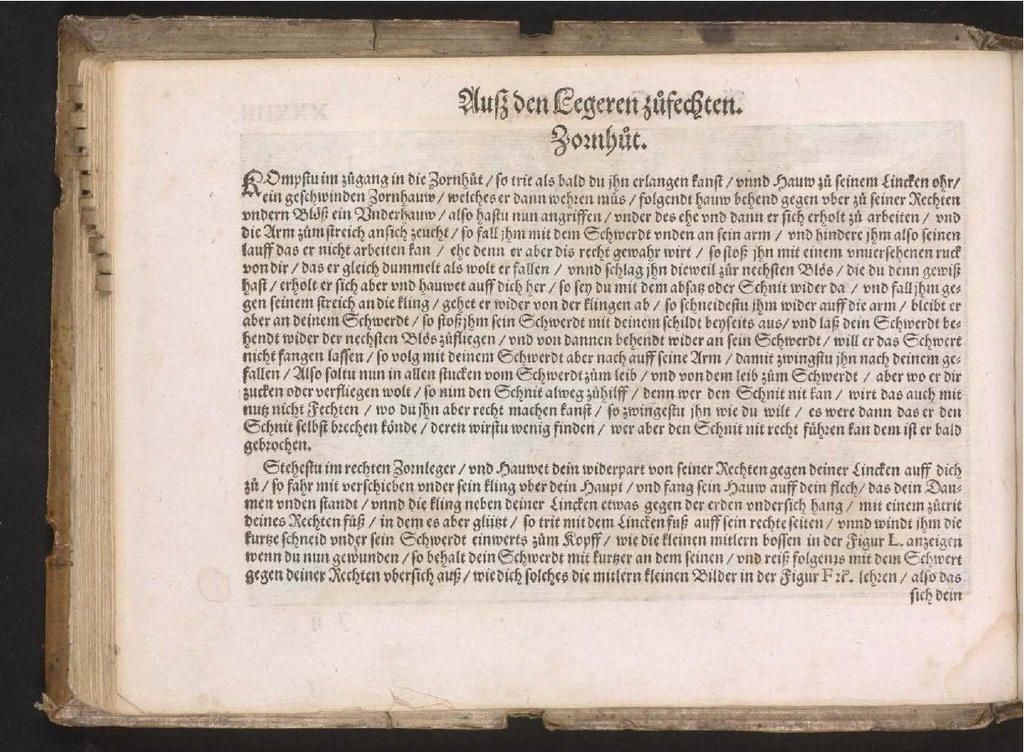 Auß den Legeren zůfechten.
Zornhůt.
KOmpstu im zůgang in die Zornhůt / so trit als bald du jhn erlangen kanst / vnnd Hauw zů seinem Lincken ohr /
ein geschwinden Zornhauw / welches er dann wehren můs / folgendt hauw behend gegen vber zů seiner Rechten
vndern Blöß ein Vnderhauw / also hastu nun angriffen / vnder des ehe vnd dann er sich erholt zů arbeiten / vnd
die Arm zům streich ansich zeucht / so fall jhm mit dem Schwerdt vnden an sein arm / vnd hindere jhm also seinen
lauff das er nicht arbeiten kan / ehe denn er aber dis recht gewahr wirt / so stoß jhn mit einem vnuersehenen ruck
von dir / das er gleich dummelt als wolt er fallen / vnnd schlag jhn dieweil zůr nechsten Blös / die du denn gewiß
hast / erholt er sich aber vnd hauwet auff dich her / so sey du mit dem absatz oder Schnit wider da / vnd fall jhm ge-
gen seinem streich an die kling / gehet er wider von der klingen ab / so schneidestu jhm wider auff die arm / bleibt er
aber an deinem Schwerdt / so stoß jhm sein Schwerdt mit deinem schildt beyseits aus / vnd laß dein Schwerdt be-
hendt wider der nechsten Blös zůfliegen / vnd von dannen behendt wider an sein Schwerdt / will er das Schwert
nicht fangen lassen / so volg mit deinem Schwerdt aber nach auff seine Arm / damit zwingstu jhn nach deinem ge-
fallen / Also soltu nun in allen stucken vom Schwerdt zům leib / vnd von dem leib zům Schwerdt / aber wo er dir
zucken oder verfliegen wolt / so nim den Schnit alweg zůhilff / denn wer den Schnit nit kan / wirt das auch mit
nutz nicht Fechten / wo du jhn aber recht machen kanst / so zwingestu jhn wie du wilt / es were dann das er den
Schnit selbst brechen könde / deren wirstu wenig finden / wer aber den Schnit nit recht führen kan dem ist er bald
gebrochen.
Stehestu im rechten Zornleger / vnd Hauwet dein widerpart von seiner Rechten gegen deiner Lincken auff dich
zů / so fahr mit verschieben vnder sein kling vber dein Haupt / vnd fang sein Hauw auff dein flech / das dein Dau-
men vnden standt / vnnd die kling neben deiner Lincken etwas gegen der erden vndersich hang / mit einem zůtrit
deines Rechten füß / in dem es aber glützt / so trit mit dem Lincken fuß auff sein rechte seiten / vnnd windt jhm die
kurtze schneid vnder sein Schwerdt einwerts zům Kopff / wie die kleinen mitlern bossen in der Figur L. anzeigen
wenn du nun gewunden / so behalt dein Schwerdt mit kurtzer an dem seinen / vnd reiß folgens mit dem Schwert
gegen deiner Rechten vbersich auß / wie dich solches die mitlern kleinen Bilder in der Figur lehren / also das
sich dein